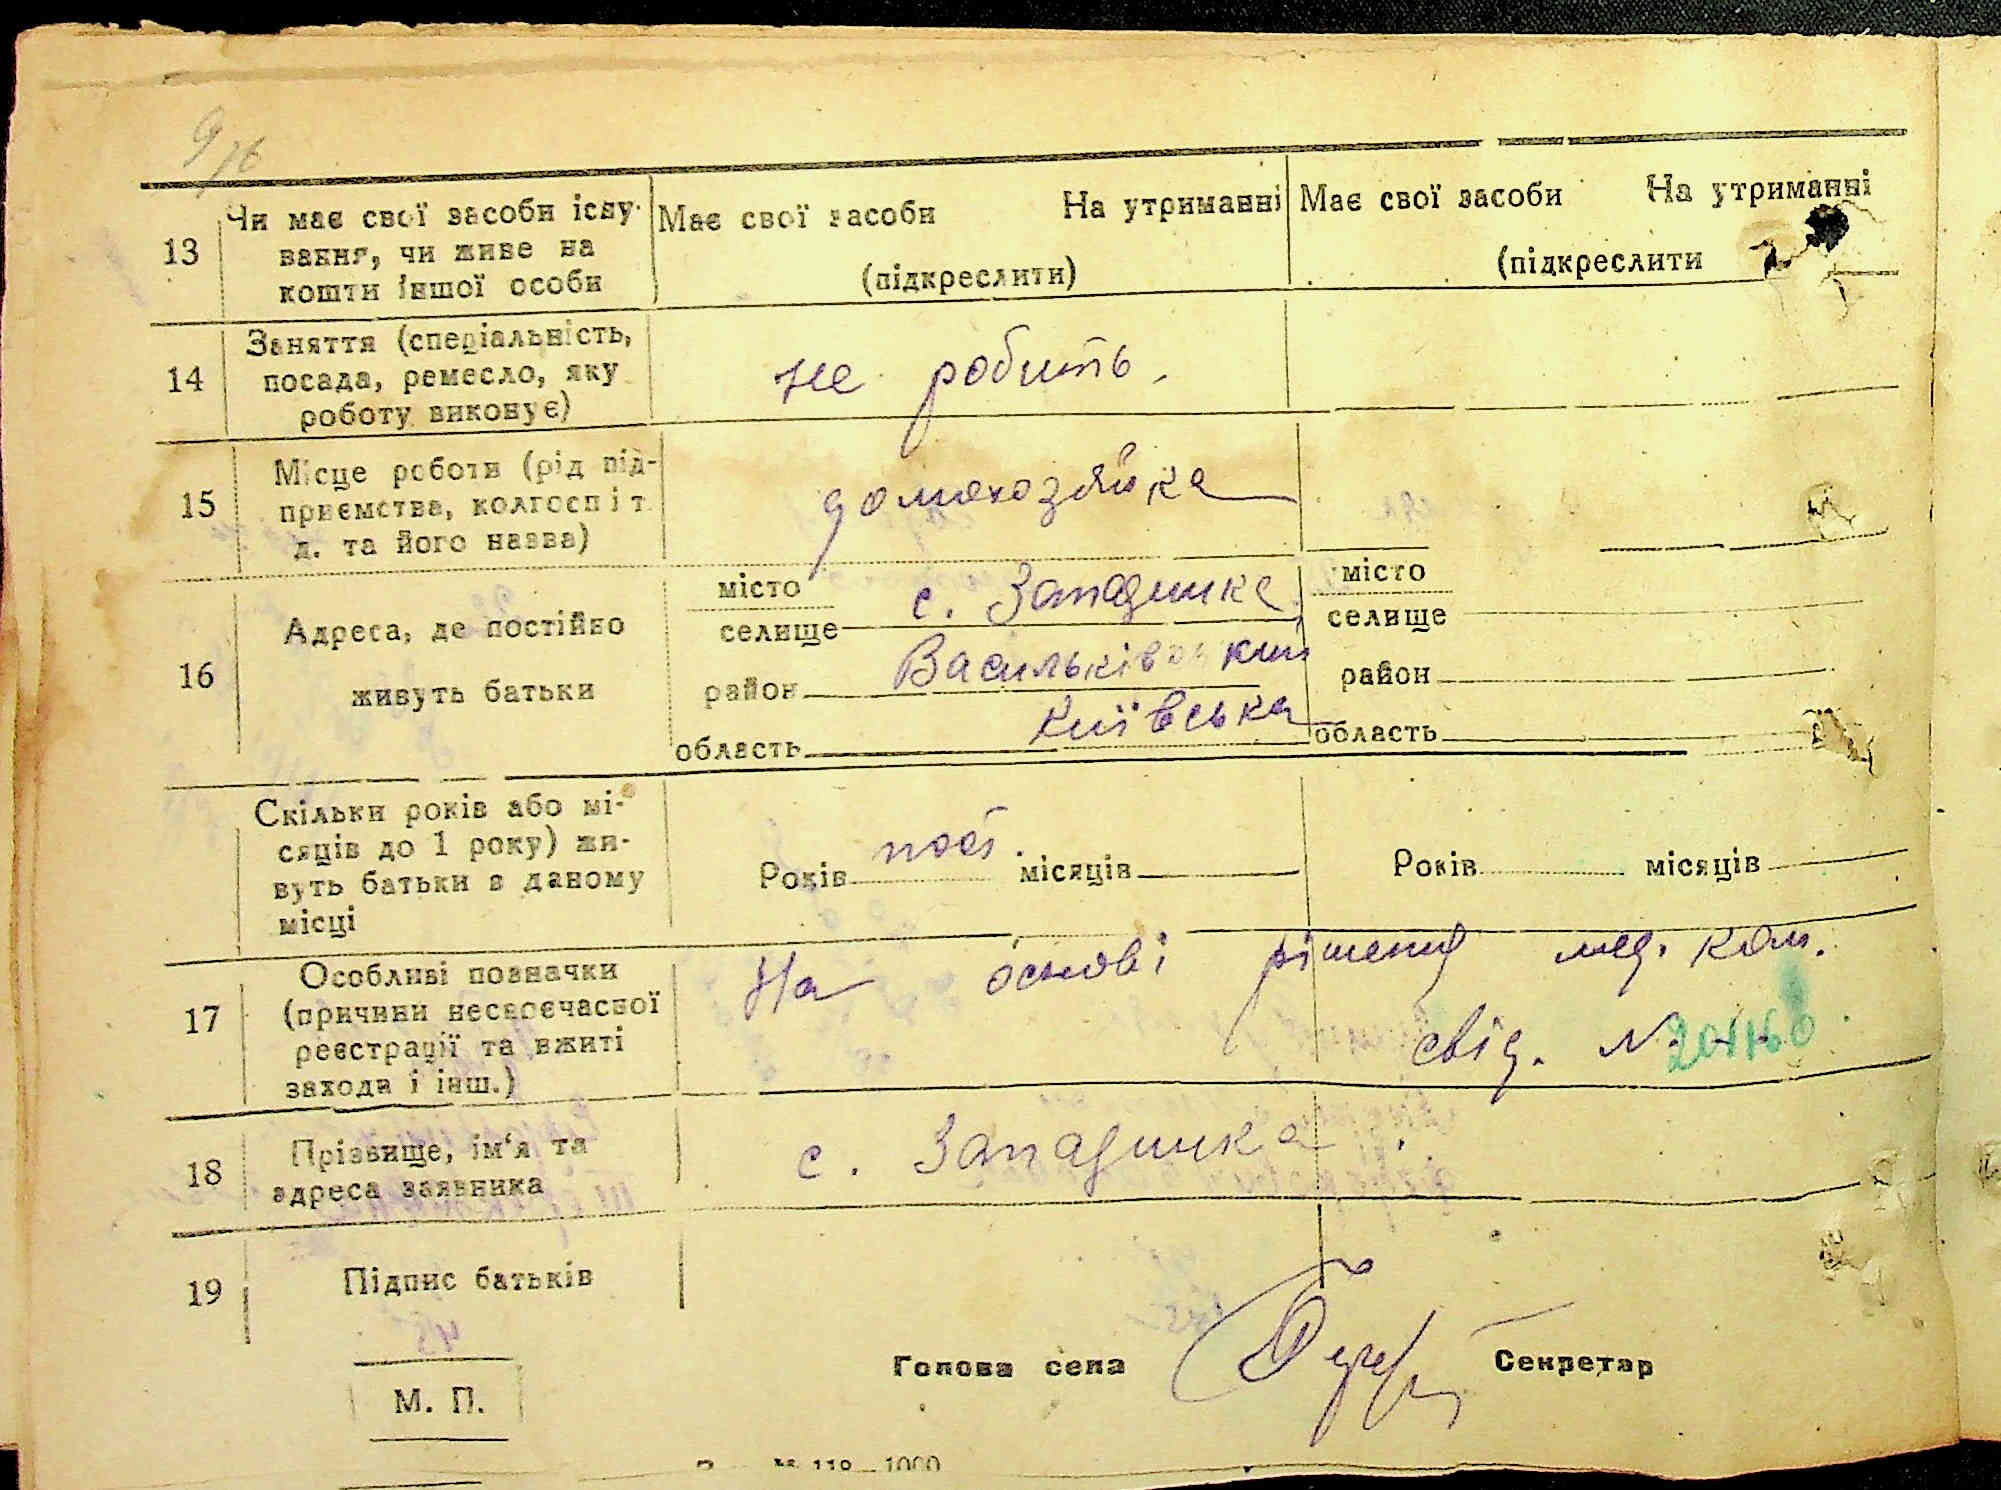 9/16
13 Чи має свої засоби існу-
вання, чи живе на
кошти іншої особи
Має свої засоби На утриманні
(підкреслити)
Має свої засоби На утриманні
(підкреслити
14 Заняття (спеціальність,
посада, ремесло, яку
роботу виконує)
не робить.
15 Місце роботи (рід під-
приємства, колгосп і т.
д. та його назва)
домохозяйка
16 Адреса, де постійно
живуть батьки
місто
селище с. Западинка
район Васильківський
область Київська
місто
селище
район
область
Скільки років або мі-
сяців до 1 року) жи-
вуть батьки в даному
місці
Років пост. місяців
Років місяців
17 Особливі позначки
(причини несвоєчасної
реєстрації та вжиті
заходи і інш.)
На основі рішення мед. ком.
свід. №
18 Прізвище, ім'я та
адреса заявника
с. Западинка
19 Підпис батьків
М. П.
Голова села Секретар
№ 118—1000